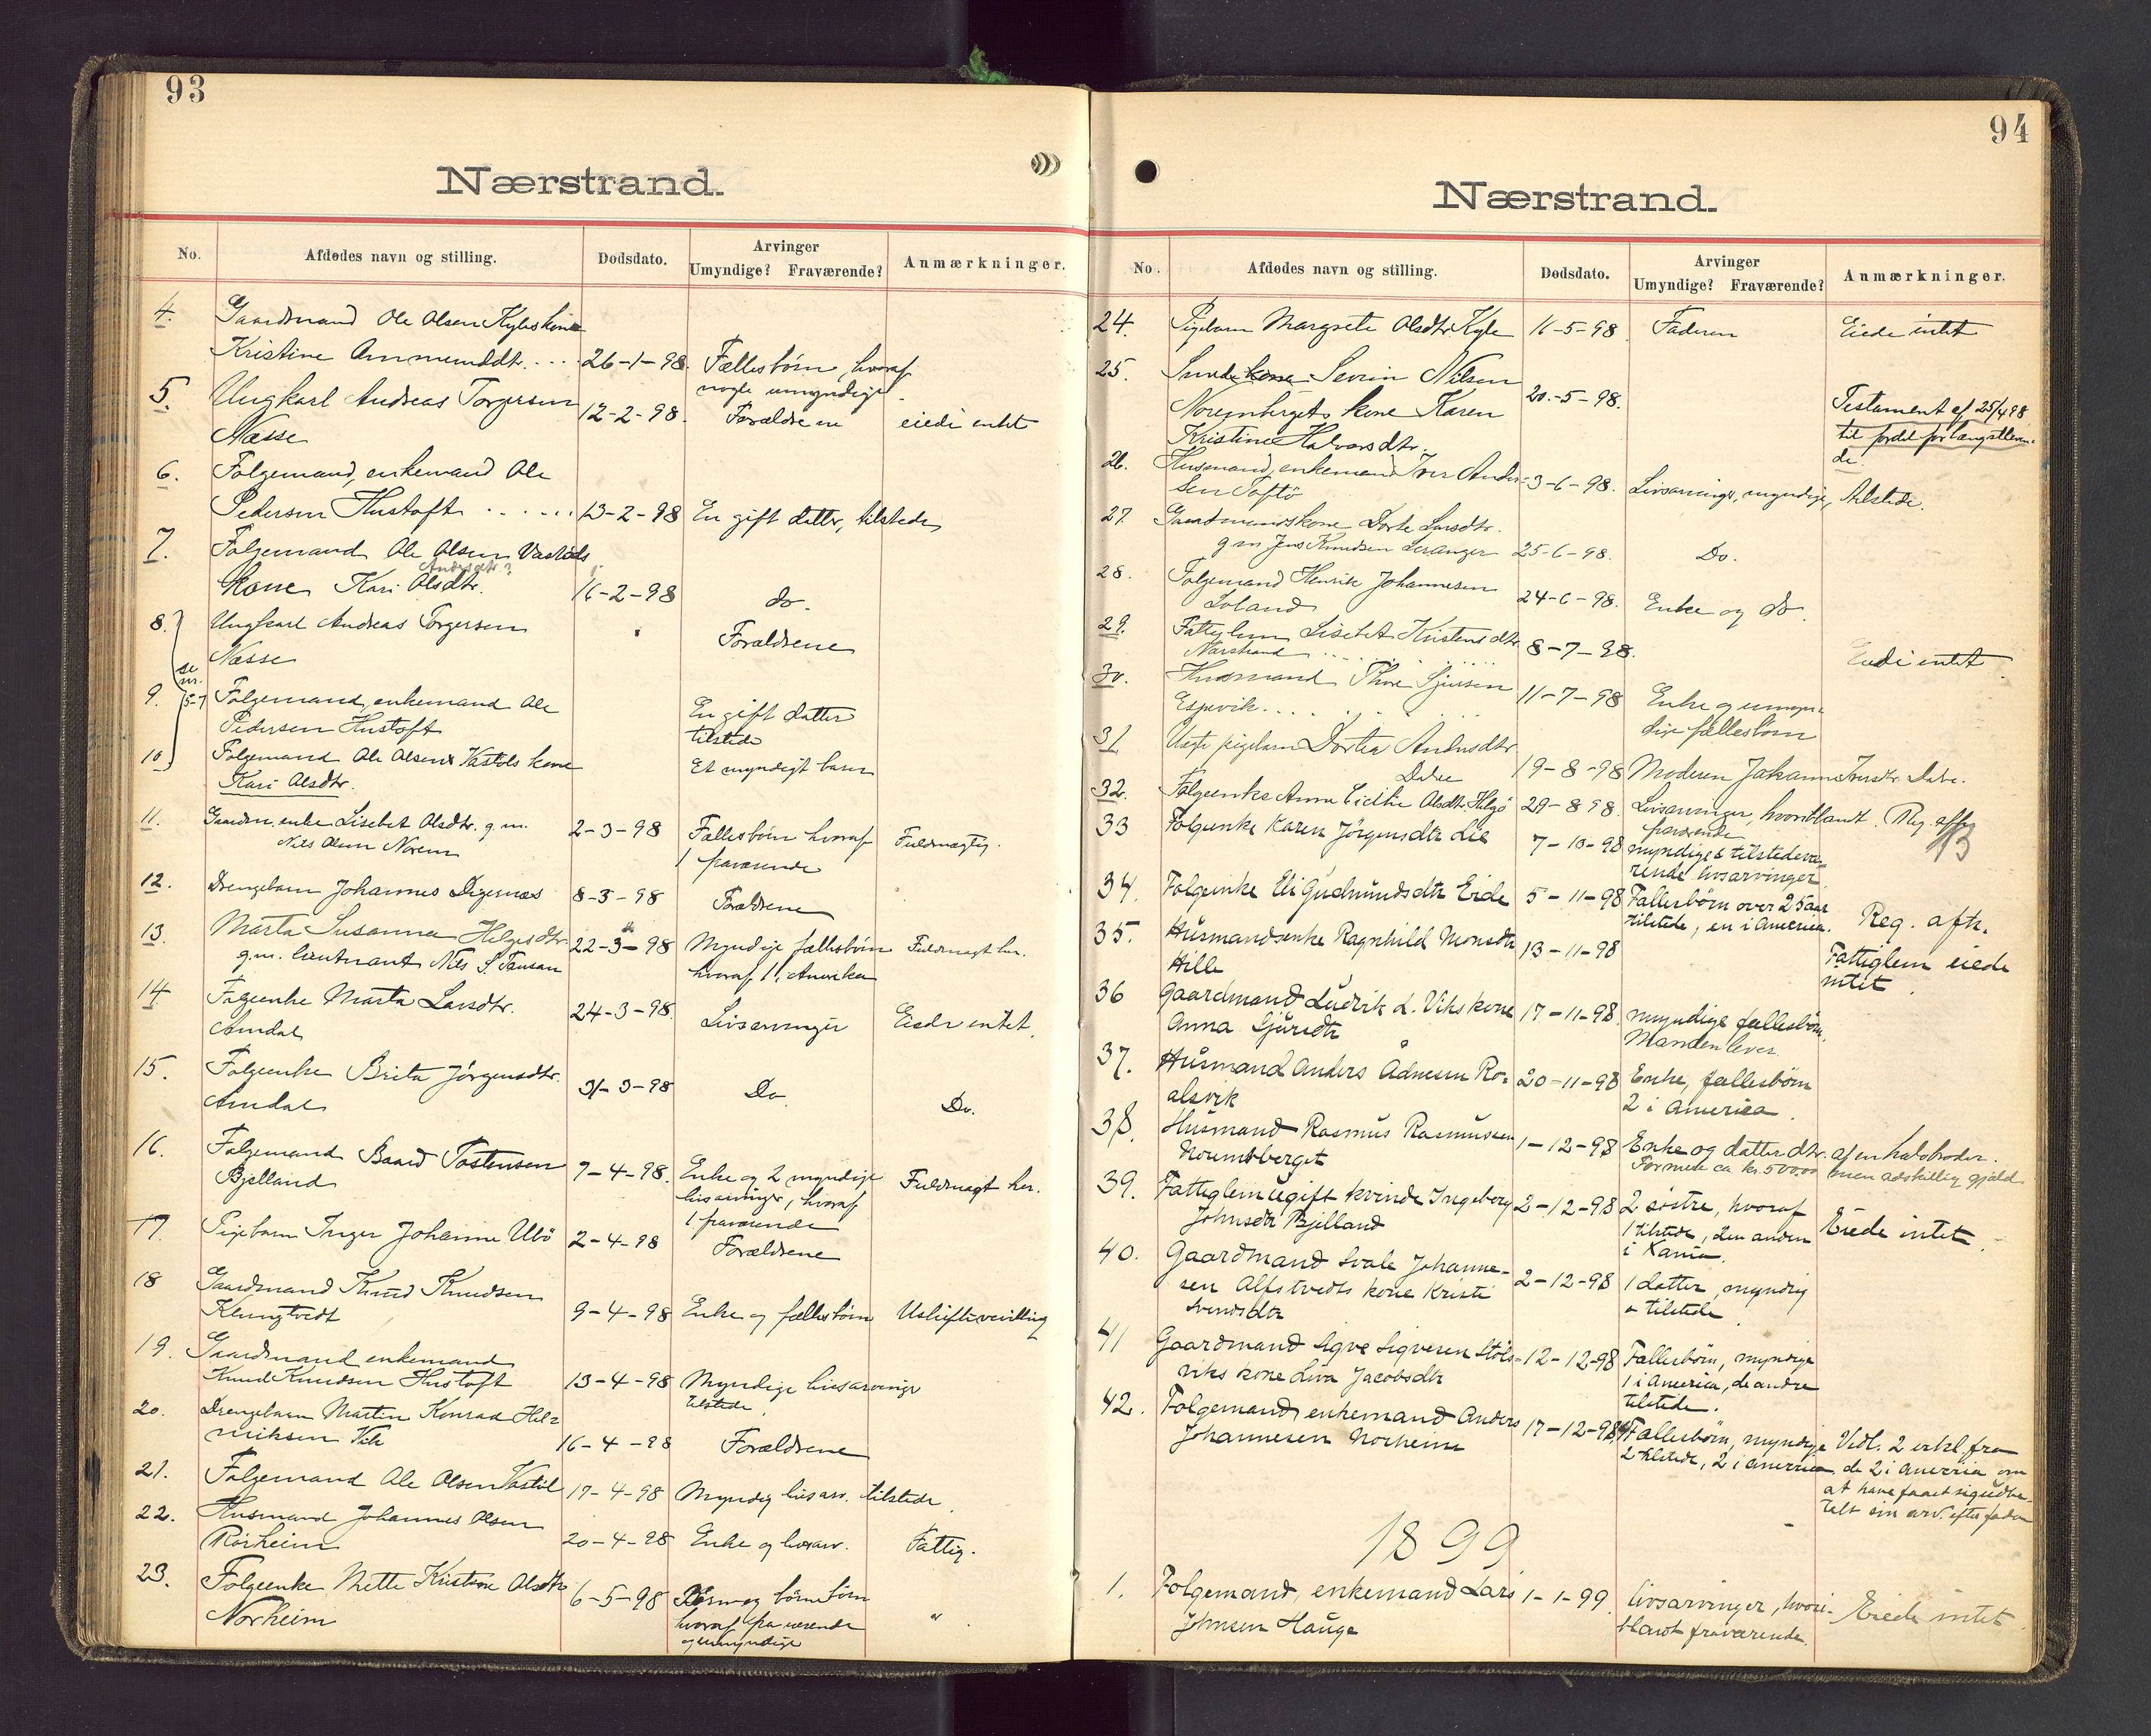 93
Nærstrand.
No. Afdødes navn og stilling. Dødsdato. Arvinger Umyndige? Fraværende? Anmærkninger.
4. Gaardmand Ole Olsen Kyles kone
Kristine Ammunddtr. . . . 26-1-98. Fællesbørn, hvoraf
nogle umyndige.
5. Ungkarl Andreas Torgersen 12-2-98. Forældrene eiede intet
Næsse
6. Folgemand, enkemand Ole
Pedersen Hustoft . . . . . 13-2-98 En gift datter, tilstede
7. Folgemand Ole Olsen Vastøls
Andersdtr?
kone Kari Olsdtr. 16-2-98 do.
8. Ungkarl Andreas Torgersen Forældrene
Næsse
se nr. 5-7
9. Folgemand, enkemand Ole En gift datter
Pedersen Hustoft tilstede
10 Folgemand Ole Olsens Vastøls kone Et myndigt barn
Kari Olsdtr.
11. Gaardm. enke Lisebet Olsdtr. g. m. 2-3-98 Fællesbørn hvoraf Fuldmagtig.
Nils Olsen Norem 1 fraværende
12. Drengebarn Johannes Digernæs 8-3-98 Forældrene
13. Marta Susanna Helgesdtr. 22-3-98 Myndige fællesbørn Fuldmagt her.
g. m. lieutnant Nils S. Tausan hvoraf 1 i Amerika
14 Folgeenke Marta Larsdtr. 24-3-98. Livsarvinger Eiede intet.
Amdal
15. Folgeenke Brita Jørgensdtr. 31-3-98 Do. Do.
Amdal
16. Folgemand Baard Tostensen 7-4-98. Enke og 2 myndige Fuldmagt her.
Bjelland livsarvinger, hvoraf
1 fraværende
17. Pigebarn Inger Johanne Ubø 2-4-98 Forældrene
18 Gaardmand Knud Knudsen
Klungtvedt 9-4-98 Enke og fællesbørn Uskiftevilling
19. Gaardmand enkemand
Knud Knudsen Hustoft 13-4-98 Myndige livsarvinger
tilstede.
20. Drengebarn Martin Konrad Hen-
riksen Vik 16-4-98 Forældrene
21. Folgemand Ole Olsen Vastøl 17-4-98 Myndig livsarv. tilstede.
22. Husmand Johannes Olsen
Rørheim 20-4-98 Enke og livsarv. Fattig.
23. Folgeenke Mette Kristine Olsdtr. 6-5-98 Børn og børnebørn
Norheim hvoraf fraværende "
og umyndige
94
Nærstrand.
No. Afdødes navn og stilling. Dødsdato. Arvinger Umyndige? Fraværende? Anmærkninger.
24. Pigebarn Margrete Olsdtr. Kyle 16-5-98. Faderen Eiede intet
25. Smed kone Sevrin Nilsen
Noremsbergets kone Karen 20.-5-98. Testament af 25/4 98
Kristine Halvorsdtr. til fordel for længstleven-
de.
26. Husmand, enkemand Iver Ander- 3-6-98. Livsarvinger, myndige, tilstede.
sen Toftø
27. Gaardmandskone Dorte Larsdtr.
g m Jens Knudsen Leranger 25-6-98. Do.
28. Folgemand Henrik Johannesen
Loland 24-6-98. Enke og do
29. Fattiglem Lisebet Kristensdtr.
Nærstrand . . . . . 8-7-98. Eiede intet.
30. Husmand Thore Sjursen 11-7-98 Enke og umyn-
Espevik. . . . . . dige fællesbørn
31. Uægte pigebarn Dortea Andersdtr.
Dabe 19-8-98 Moderen Johanne Iversdtr. Dabe.
32. Folgeenke Anna Olsdtr. Helgø 29-8 98. Livsarvinger, hvoriblandt Reg. afh.
fraværende
33 Folgeenke Karen Jørgensdtr Lie 7-10-98 myndige & tilstedevæ- 13
rende livsarvinger
34. Folgeenke Eli Gudmundsdtr Eide 5-11-98 Fællesbørn over 25 aar
tilstede, en i America. Reg. afh.
35. Husmandsenke Ragnhild Monsdtr 13-11-98 Fattiglem eiede
Hille intet.
36 Gaardmand Ludvik L. Viks kone 17-11-98. myndige fællesbørn.
Anna Sjursdtr Manden lever.
37. Husmand Anders Ådnesen Ro- 20-11-98 Enke, fællesbørn
alsvik 2 i America.
38. Husmand Rasmus Rasmussen 1-12-98 Enke og datter dtr. af en halvbroder.
Noremsberget Formue ca kr. 500,00 men adskillig gjæld.
39. Fattiglem ugift kvinde Ingeborg 2-12-98 2 søstre, hvoraf Eiede intet.
Johnsdtr Bjelland 1 tilstede, den anden
i Xania.
40. Gaardmand Svale Johanne- 2-12-98 1 datter, myndig
sen Alfstvedts kone Kristi & tilstede.
Svendsdtr
41 Gaardmand Sigve Sigvesen Støls- 12-12-98 Fællesbørn, myndige
viks kone Liva Jacobsdtr 1 i America, de andre
tilstede.
42. Folgemand, enkemand Anders 17-12-98 4 Fællesbørn, myndige Vedl. 2 erkl. fra
Johannesen Norheim 2 tilstede, 2 i America de 2 i America om
at have faaet sig udbe-
talt sin arv efter faderen
1899
1. Folgemand, enkemand Lars 1-1-99. livsarvinger, hvori- Eiede intet.
Johnsen Hauge blandt fraværende.